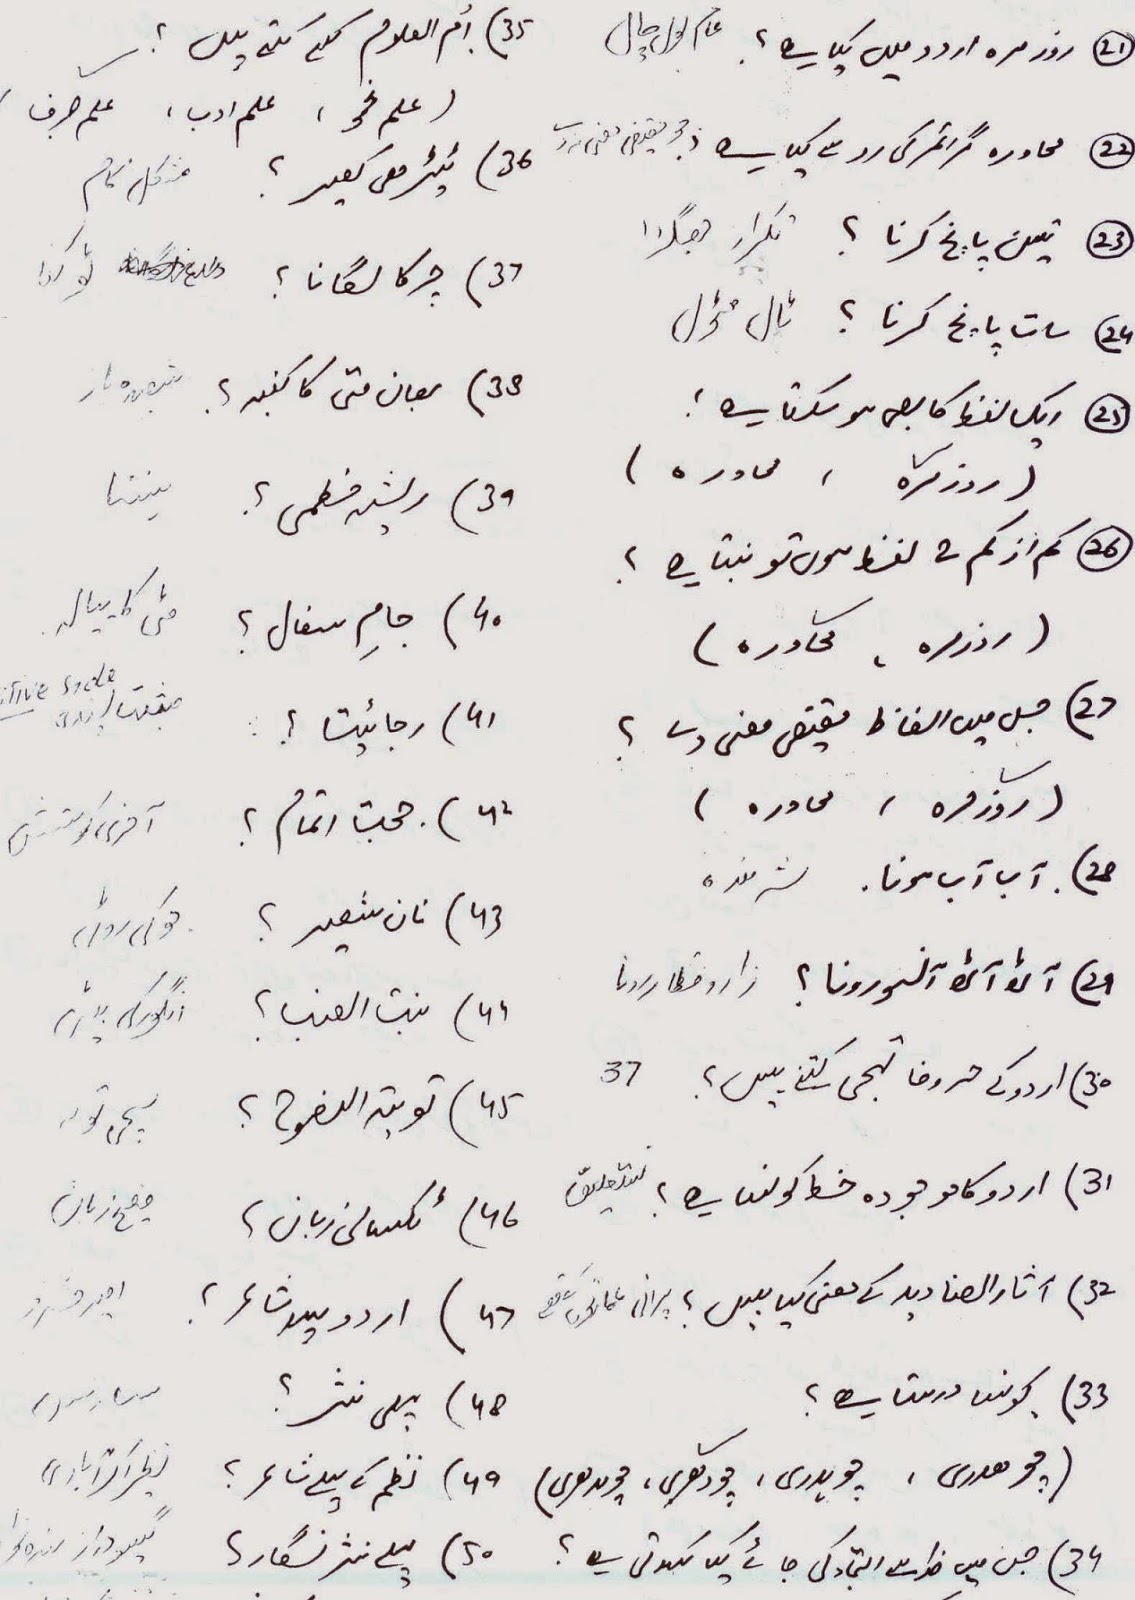 21) روزمرہ اردو میں کیا ہے؟ عام بول چال
22) محاورہ گرائمر کی رو سے کیا ہے؟ جو حقیقی معنی نہ دے
23) تین پانچ کرنا؟ تکرار جھگڑا
24) سات پانچ کرنا؟ ٹال مٹول
25) ایک لفظ کا بھی ہو سکتا ہے؟
(روزمرہ ، محاورہ)
26) کم از کم 2 لفظ ہوں تو بنتا ہے؟
(روزمرہ ، محاورہ)
27) جس میں الفاظ حقیقی معنی دے؟
(روزمرہ ، محاورہ)
28) آب آب ہونا۔ شرمندہ
29) آٹھ آٹھ آنسو رونا؟ زار و قطار رونا
30) اردو کے حروف تہجی کتنے ہیں؟ 37
31) اردو کا موجودہ خط کونسا ہے؟ نستعلیق
32) آثار الصنادید کے معنی کیا ہیں؟ پرانی عمارتوں کے
33) کونسا درست ہے؟
(چوھدری ، چوہدری ، چودھری ، چوہدھری)
34) جس میں خدا سے التجا کی جائے کیا کہلاتی ہے؟
35) اُم العلوم کسے کہتے ہیں؟
(علم نحو ، علم ادب ، علم صرف)
36) ٹیڑھی کھیر؟ مشکل کام
37) چرکا لگانا؟
38) بھان متی کا کنبہ؟ شعبدہ باز
39) ریشہ خطمی؟
40) جامِ سفال؟ مٹی کا پیالہ
41) رجائیت؟ side
42) حجت اتمام؟ آخری کوشش
43) نان شعیر؟ جو کی روٹی
44) بنت العنب؟ انگور کی بیٹی
45) توبتہ النصوح؟ سچی توبہ
46) ٹکسالی زبان؟ فصیح زبان
47) اردو پہلا شاعر؟ امیر خسرو
48) پہلی نثر؟ سب رس
49) نظم کے پہلے شاعر؟ نظیر اکبر آبادی
50) پہلے نثر نگار؟ گیسو دراز بندہ نواز